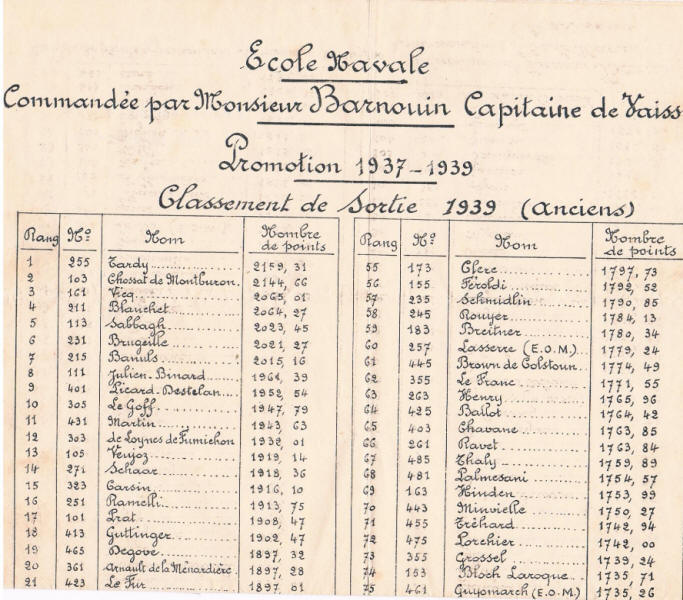 Ecole Navale
Commandée par Monsieur Barnouin Capitaine de Vaiss
Promotion 1937-1939
Classement de Sortie 1939 (Anciens)
Rang No Nom Nombre de points
1 255 Tardy 2159,31
2 103 Chossat de Montburon 2144,66
3 161 Vicq 2065,01
4 211 Blanchet 2064,27
5 113 Sabbagh 2023,45
6 231 Brugeille 2021,27
7 215 Banuls 2015,16
8 111 Julien-Binard 1961,39
9 401 Licard-Destelan 1952,54
10 305 Le Goff 1947,79
11 431 Martin 1943,63
12 303 de Loynes de Fumichon 1932,01
13 105 Veujoz 1919,14
14 271 Schaar 1918,36
15 323 Carsin 1916,10
16 251 Ramelli 1913,75
17 101 Prat 1908,47
18 413 Guttinger 1902,47
19 465 Degove 1897,32
20 361 Arnault de la Ménardière 1897,28
21 423 Le Fur 1897,01
Rang No Nom Nombre de points
55 173 Clerc 1797,73
56 155 Féroldi 1792,52
57 235 Schmidlin 1790,85
58 245 Rouyer 1784,13
59 183 Breitner 1780,34
60 257 Lasserre (E.O.M.) 1779,24
61 445 Brown de Colstoun 1774,49
62 355 Le Franc 1771,55
63 263 Henry 1765,96
64 425 Ballot 1764,42
65 403 Chavane 1763,85
66 261 Ravet 1763,84
67 485 Thaly 1759,89
68 481 Palmesani 1754,57
69 163 Hinden 1753,99
70 443 Minvielle 1750,27
71 455 Tréhard 1742,94
72 475 Lorchier 1742,00
73 355 Grossel 1739,24
74 153 Bloch Laroque 1735,71
75 461 Guyomarch (E.O.M.) 1735,26